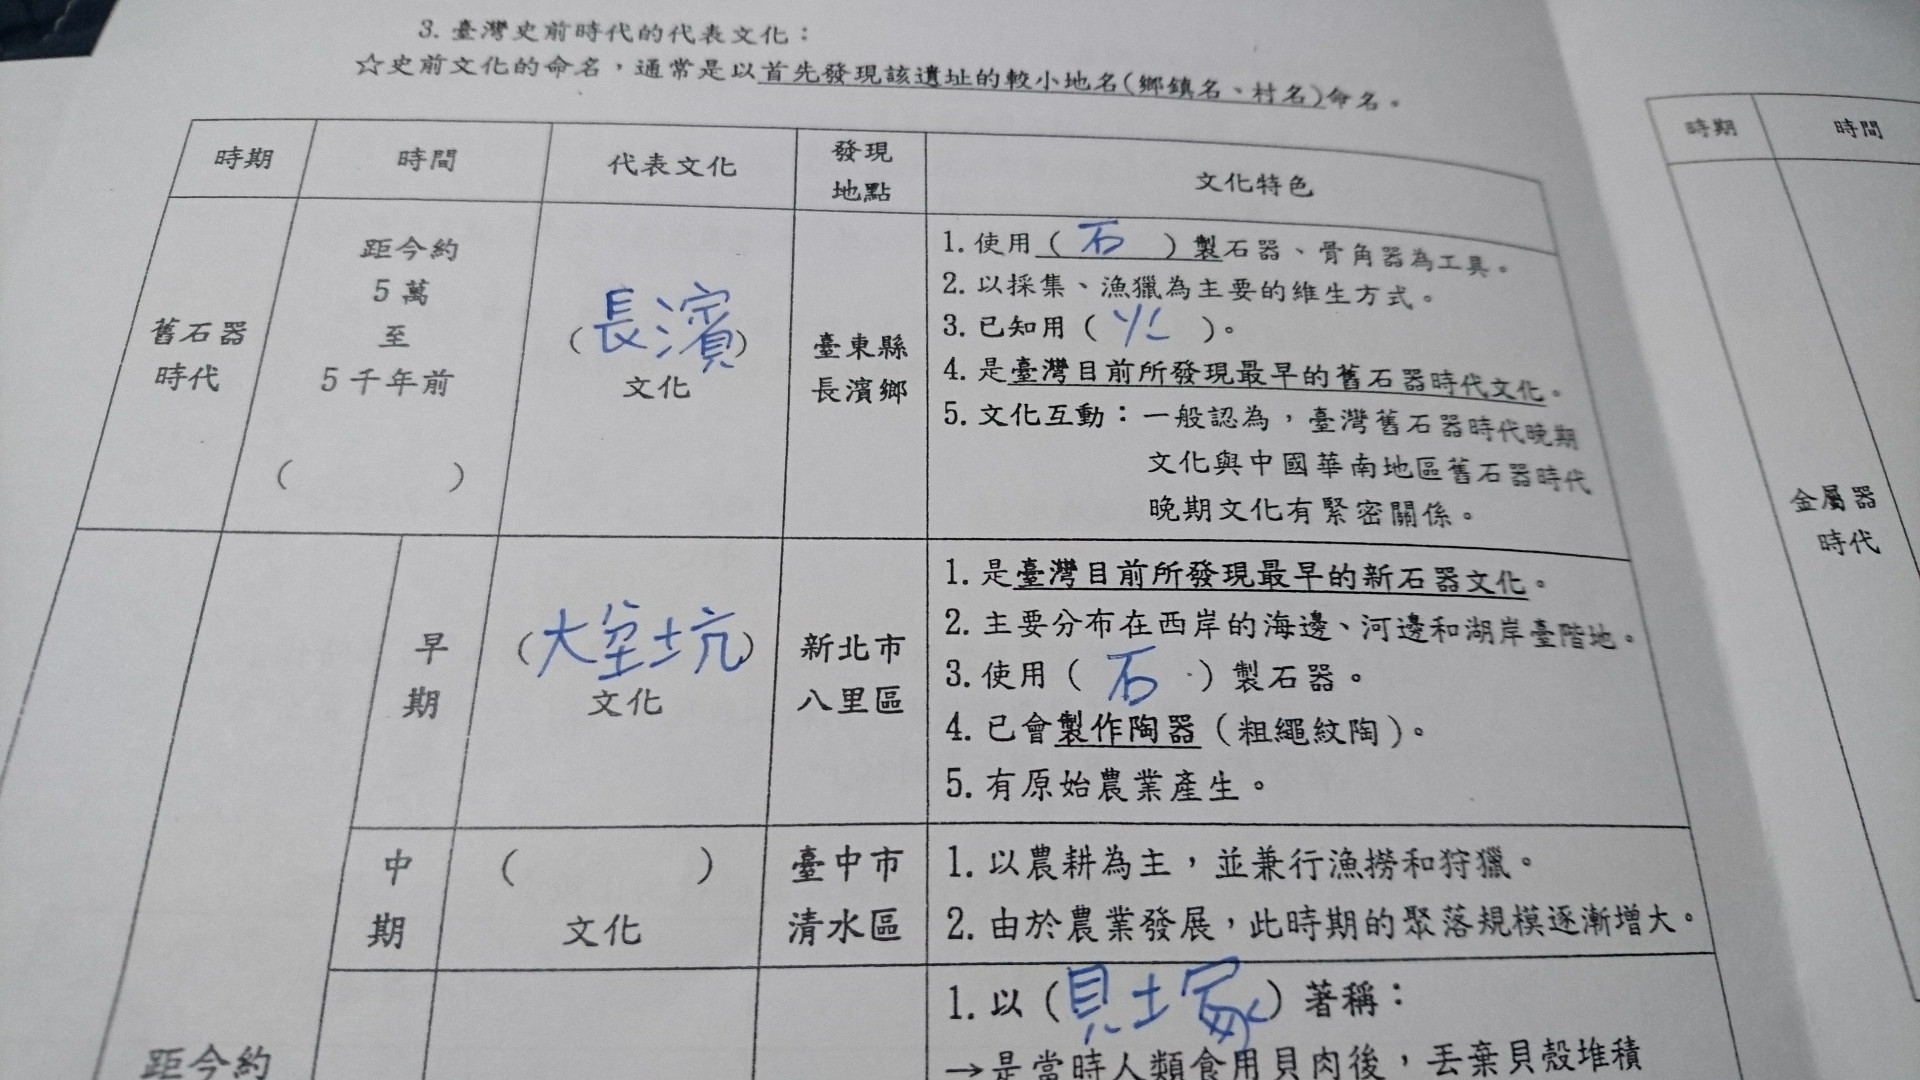 3. 臺灣史前時代的代表文化：
☆史前文化的命名，通常是以首先發現該遺址的較小地名(鄉鎮名、村名)命名。
時期
時間
代表文化
發現
地點
文化特色
舊石器
時代
距今約
5萬
至
5千年前
(　　　　)
(長濱)
文化
臺東縣
長濱鄉
1. 使用(石)製石器、骨角器為工具。
2. 以採集、漁獵為主要的維生方式。
3. 已知用(火)。
4. 是臺灣目前所發現最早的舊石器時代文化。
5. 文化互動：一般認為，臺灣舊石器時代晚期
文化與中國華南地區舊石器時代
晚期文化有緊密關係。
距今約
早
期
(大坌坑)
文化
新北市
八里區
1. 是臺灣目前所發現最早的新石器文化。
2. 主要分布在西岸的海邊、河邊和湖岸臺階地。
3. 使用(石)製石器。
4. 已會製作陶器(粗繩紋陶)。
5. 有原始農業產生。
中
期
(　　　　)
文化
臺中市
清水區
1. 以農耕為主，並兼行漁撈和狩獵。
2. 由於農業發展，此時期的聚落規模逐漸增大。
1. 以(貝塚)著稱：
→是當時人類食用貝肉後，丟棄貝殼堆積
時期
時間
金屬器
時代